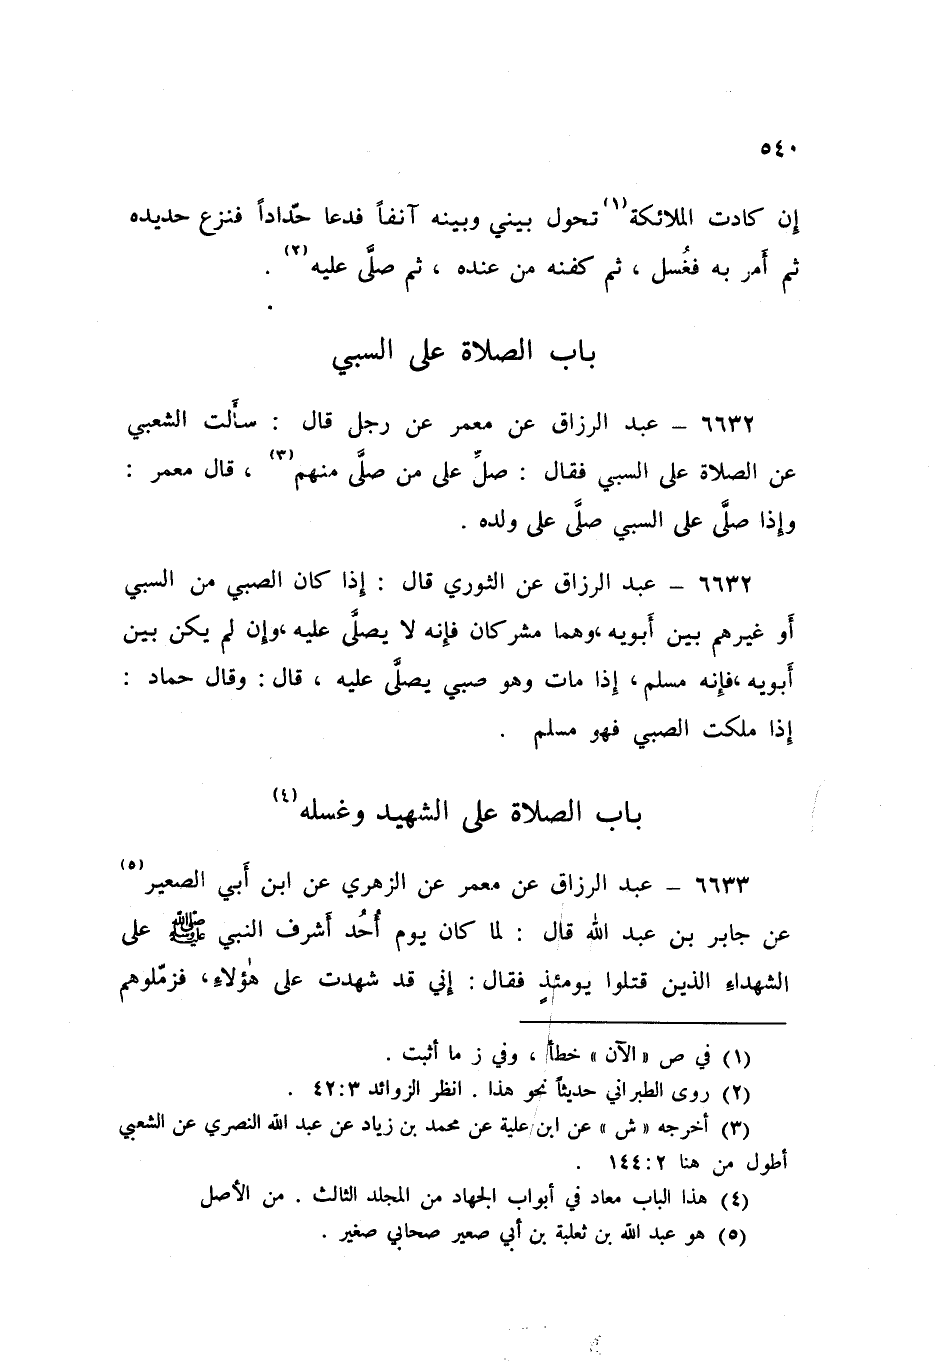 ٥٤٠
إن كادت الملائكة(١) تحول بيني وبينه آنفاً فدعا حدّاداً فنزع حديده
ثم أَمر به فغُسل ، ثم كفنه من عنده ، ثم صلَّى عليه(٢) .
باب الصلاة على السبي
٦٦٣٢ – عبد الرزاق عن معمر عن رجل قال : سأَلت الشعبي
عن الصلاة على السبي فقال : صلِّ على من صلَّى منهم(٣) ، قال معمر :
وإذا صلَّى على السبي صلَّى على ولده .
٦٦٣٢ – عبد الرزاق عن الثوري قال : إذا كان الصبي من السبي
أَو غيرهم بين أَبويه ،وهما مشركان فإنه لا يصلَّى عليه ،وإن لم يكن بين
أَبويه ،فإنه مسلم ، إذا مات وهو صبي يصلَّى عليه ، قال : وقال حماد :
إذا ملكت الصبي فهو مسلم .
باب الصلاة على الشهيد وغسله(٤)
٦٦٣٣ – عبد الرزاق عن معمر عن الزهري عن ابن أَبي الصعير(٥)
عن جابر بن عبد الله قال : لما كان يوم أُحُد أَشرف النبي ﷺ على
الشهداءِ الذين قتلوا يومئذٍ فقال : إني قد شهدت على هٰؤلاءِ ، فزمّلوهم
(١) في ص « الآن » خطأ ، وفي ز ما أثبت .
(٢) روى الطبراني حديثاً نحو هذا . انظر الزوائد ٣:٤٢ .
(٣) أخرجه « ش » عن ابن علية عن محمد بن زياد عن عبد الله النصري عن الشعبي
أطول من هنا ٢:١٤٤ .
(٤) هذا الباب معاد في أبواب الجهاد من المجلد الثالث . من الأصل
(٥) هو عبد الله بن ثعلبة بن أبي صعير صحابي صغير .